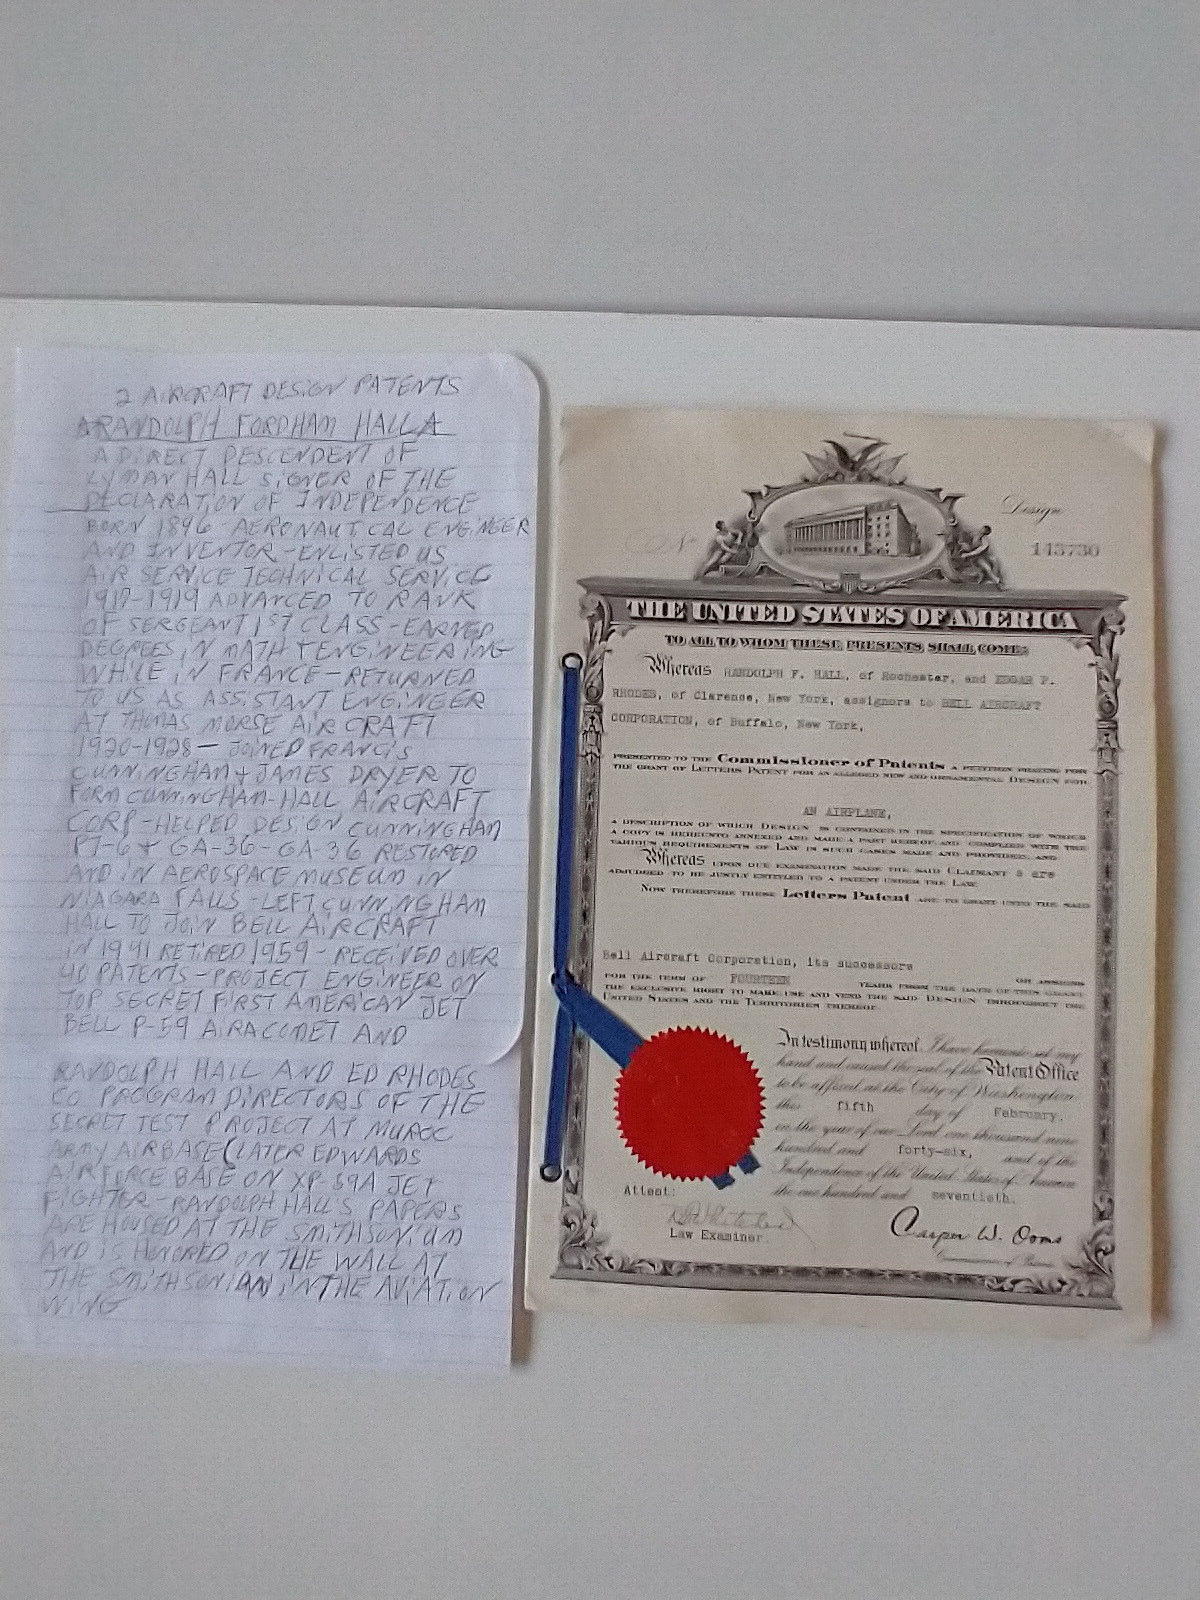 2 AIRCRAFT DESIGN PATENTS
RANDOLPH FORDHAM HALL
A DIRECT DESCENDENT OF
LYMAN HALL SIGNER OF THE
DECLARATION OF INDEPENDENCE
BORN 1896 - AERONAUTICAL ENGINEER
AND INVENTOR - ENLISTED US
AIR SERVICE TECHNICAL SERVICE
1917-1919 ADVANCED TO RANK
OF SERGEANT 1ST CLASS - EARNED
DEGREES IN MATH & ENGINEERING
WHILE IN FRANCE - RETURNED
TO US AS ASSISTANT ENGINEER
AT THOMAS MORSE AIRCRAFT
1920-1928 - JOINED FRANCIS
CUNNINGHAM & JAMES DRYER TO
FORM CUNNINGHAM-HALL AIRCRAFT
CORP - HELPED DESIGN CUNNINGHAM
PT-6 & GA-36 - GA-36 RESTORED
AND IN AEROSPACE MUSEUM IN
NIAGARA FALLS - LEFT CUNNINGHAM
HALL TO JOIN BELL AIRCRAFT
IN 1941 RETIRED 1959 - RECEIVED OVER
40 PATENTS - PROJECT ENGINEER ON
TOP SECRET FIRST AMERICAN JET
BELL P-59 AIRACOMET AND
RANDOLPH HALL AND ED RHODES
CO PROGRAM DIRECTORS OF THE
SECRET TEST PROJECT AT MUROC
ARMY AIRBASE (LATER EDWARDS
AIR FORCE BASE ON XP-59A JET
FIGHTER - RANDOLPH HALL'S PAPERS
ARE HOUSED AT THE SMITHSONIAN
AND IS HONORED ON THE WALL AT
THE SMITHSONIAN IN THE AVIATION
WING
Design
No 143730
THE UNITED STATES OF AMERICA
TO ALL TO WHOM THESE PRESENTS SHALL COME:
Whereas RANDOLPH F. HALL, of Rochester, and EDGAR P.
RHODES, of Clarence, New York, assignors to BELL AIRCRAFT
CORPORATION, of Buffalo, New York,
PRESENTED TO THE Commissioner of Patents A PETITION PRAYING FOR
THE GRANT OF LETTERS PATENT FOR AN ALLEGED NEW AND ORNAMENTAL DESIGN FOR
AN AIRPLANE,
A DESCRIPTION OF WHICH DESIGN IS CONTAINED IN THE SPECIFICATION OF WHICH
A COPY IS HEREUNTO ANNEXED AND MADE A PART HEREOF AND COMPLIED WITH THE
VARIOUS REQUIREMENTS OF LAW IN SUCH CASES MADE AND PROVIDED, AND
Whereas UPON DUE EXAMINATION MADE THE SAID CLAIMANT s are
ADJUDGED TO BE JUSTLY ENTITLED TO A PATENT UNDER THE LAW.
NOW THEREFORE THESE Letters Patent ARE TO GRANT UNTO THE SAID
Bell Aircraft Corporation, its successors
OR ASSIGNS
FOR THE TERM OF FOURTEEN YEARS FROM THE DATE OF THIS GRANT
THE EXCLUSIVE RIGHT TO MAKE USE AND VEND THE SAID DESIGN THROUGHOUT THE
UNITED STATES AND THE TERRITORIES THEREOF.
In testimony whereof I have hereunto set my
hand and caused the seal of the Patent Office
to be affixed at the City of Washington
this fifth day of February,
in the year of our Lord one thousand nine
hundred and forty-six, and of the
Independence of the United States of America
the one hundred and seventieth.
Attest:
Law Examiner.
Casper W. Ooms
Commissioner of Patents.